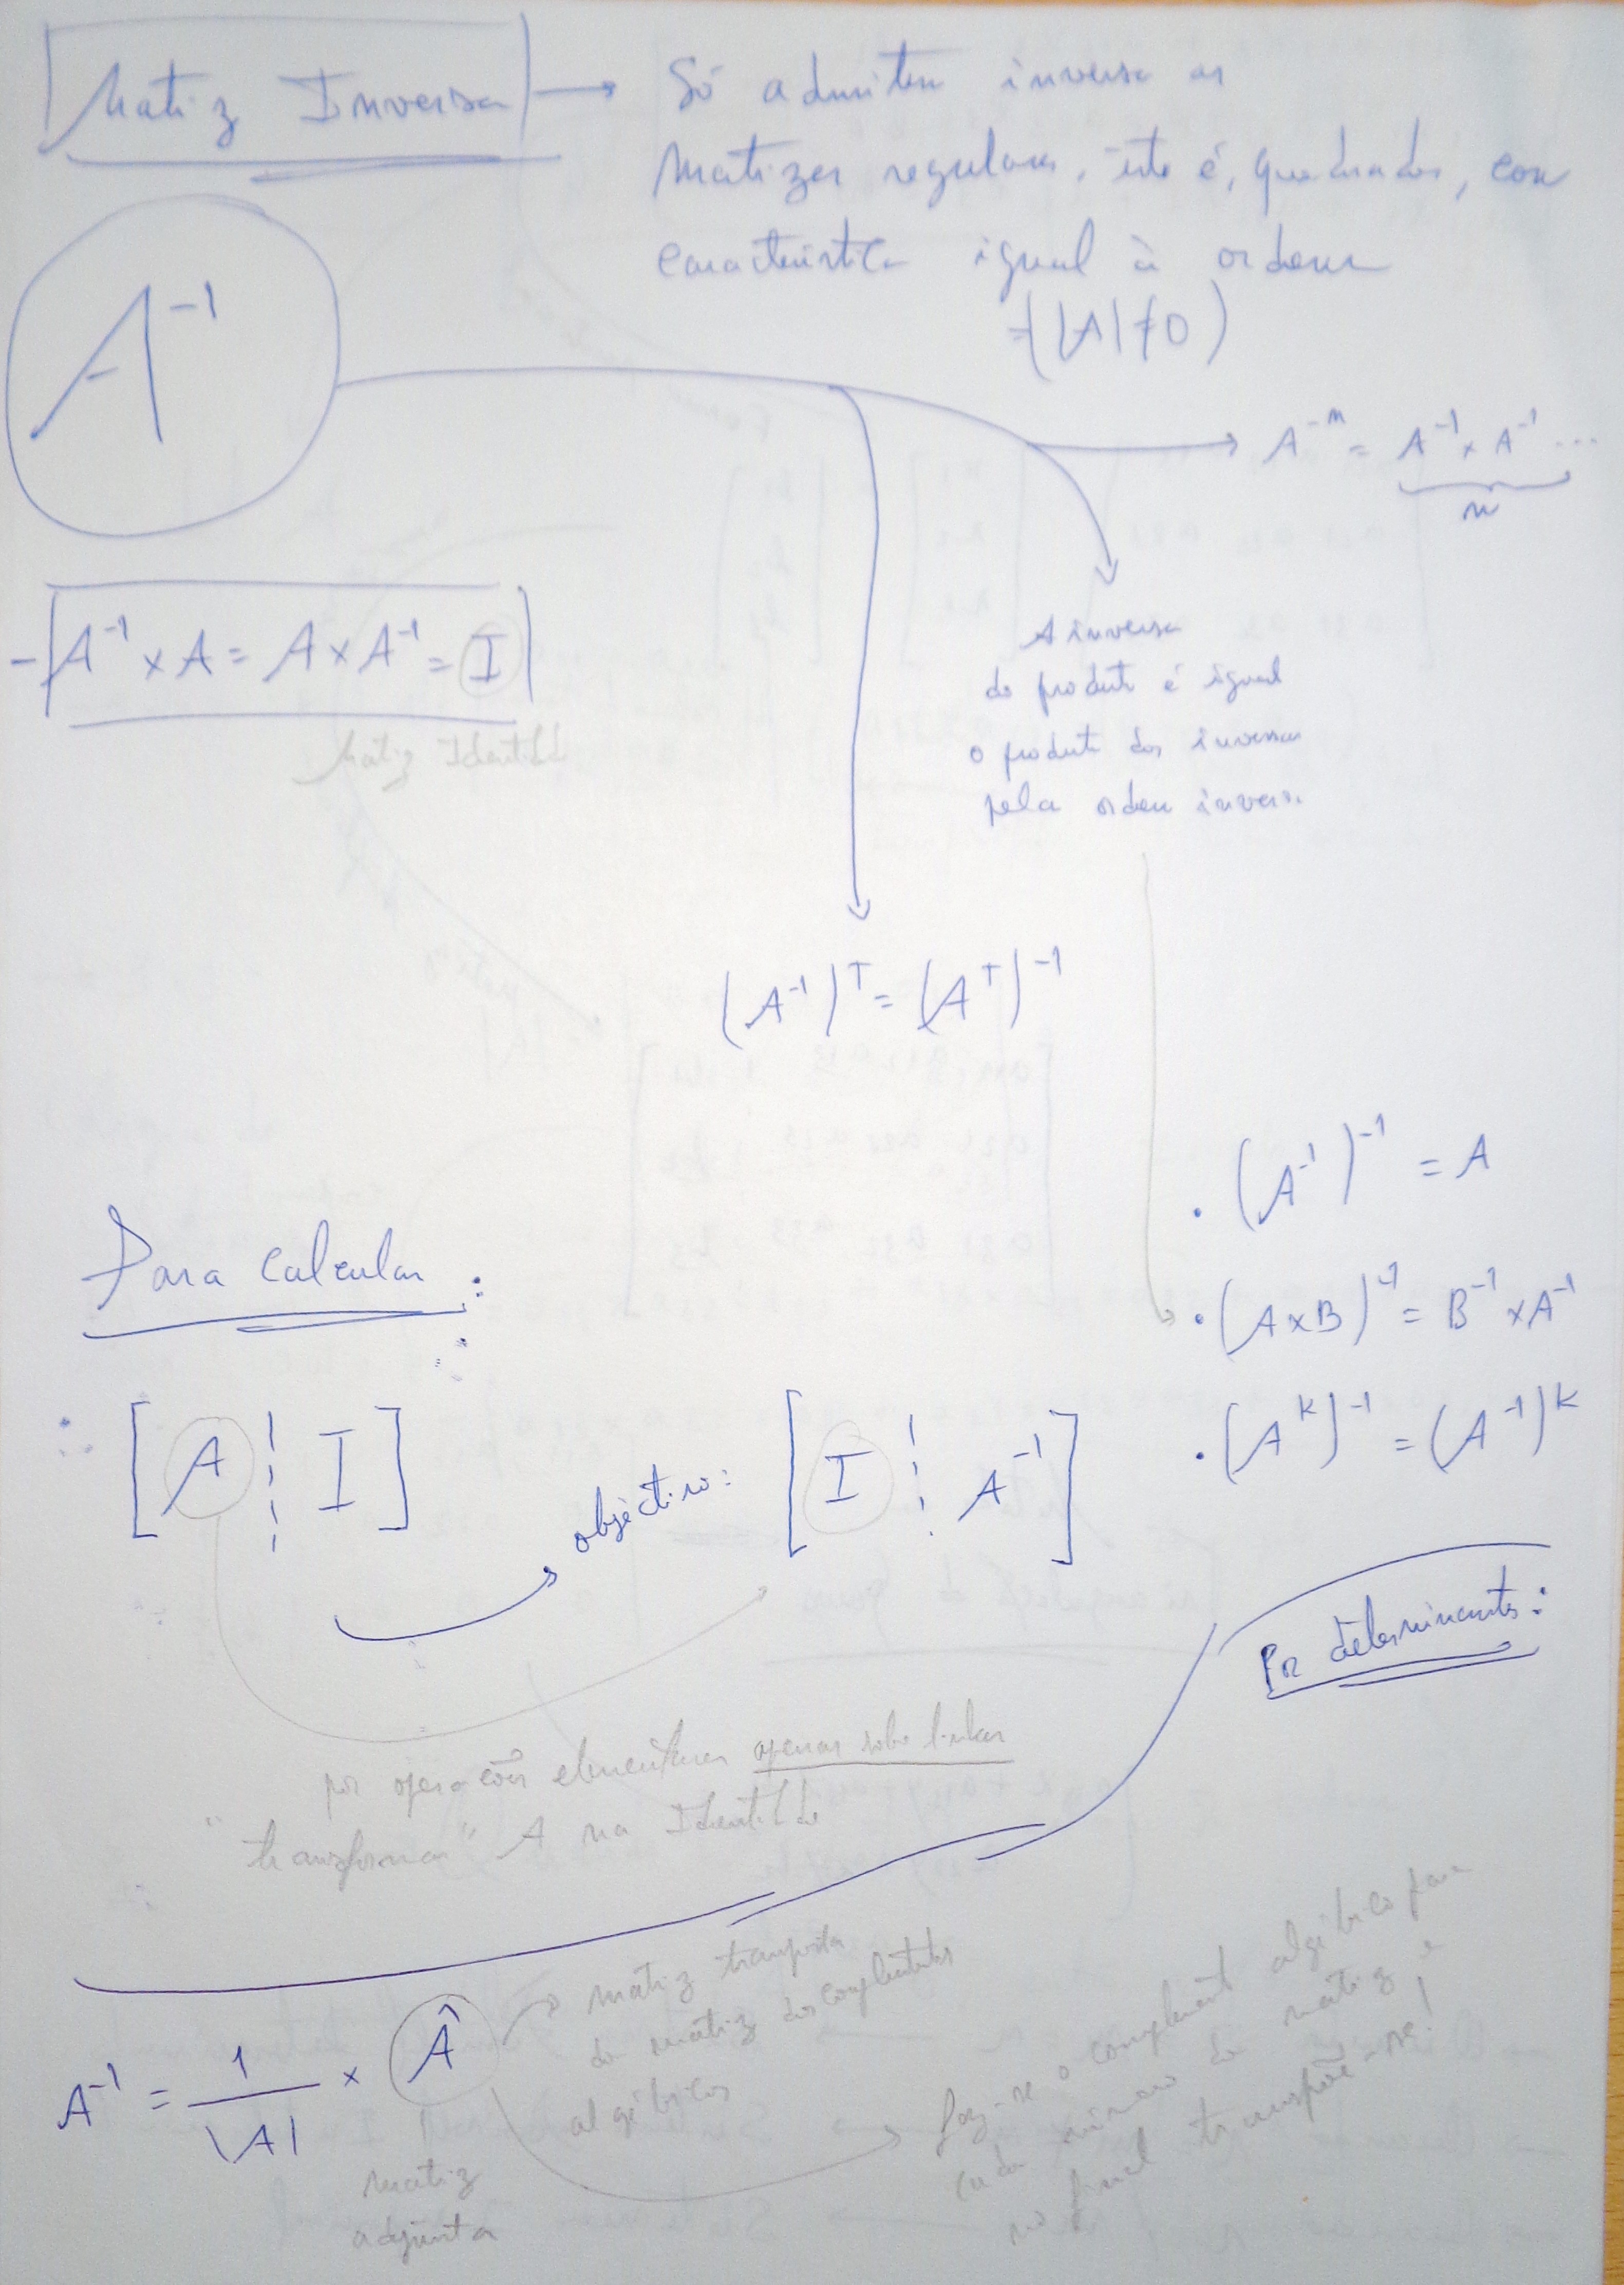 Matriz Inversa → Só admitem inversa as
matrizes regulares, isto é, quadradas, com
característica igual à ordem
(|A|≠0)
A⁻¹
A⁻ⁿ = A⁻¹ × A⁻¹ ...
n
- A⁻¹ × A = A × A⁻¹ = I
Matriz Identidade
A inversa
do produto é igual
o produto das inversas
pela ordem inversa
(A⁻¹)ᵀ = (Aᵀ)⁻¹
• (A⁻¹)⁻¹ = A
• (A×B)⁻¹ = B⁻¹ × A⁻¹
• (Aᵏ)⁻¹ = (A⁻¹)ᵏ
Para calcular:
[A ¦ I] objectivo: [I ¦ A⁻¹]
por operações elementares apenas sobre linhas
"transformar" A na Identidade
Por determinantes:
A⁻¹ = 1/|A| × Â
matriz
adjunta
matriz transposta
da matriz dos complementos
algébricos
faz-se o complemento algébrico para
cada número da matriz e
no final transpõe-se!